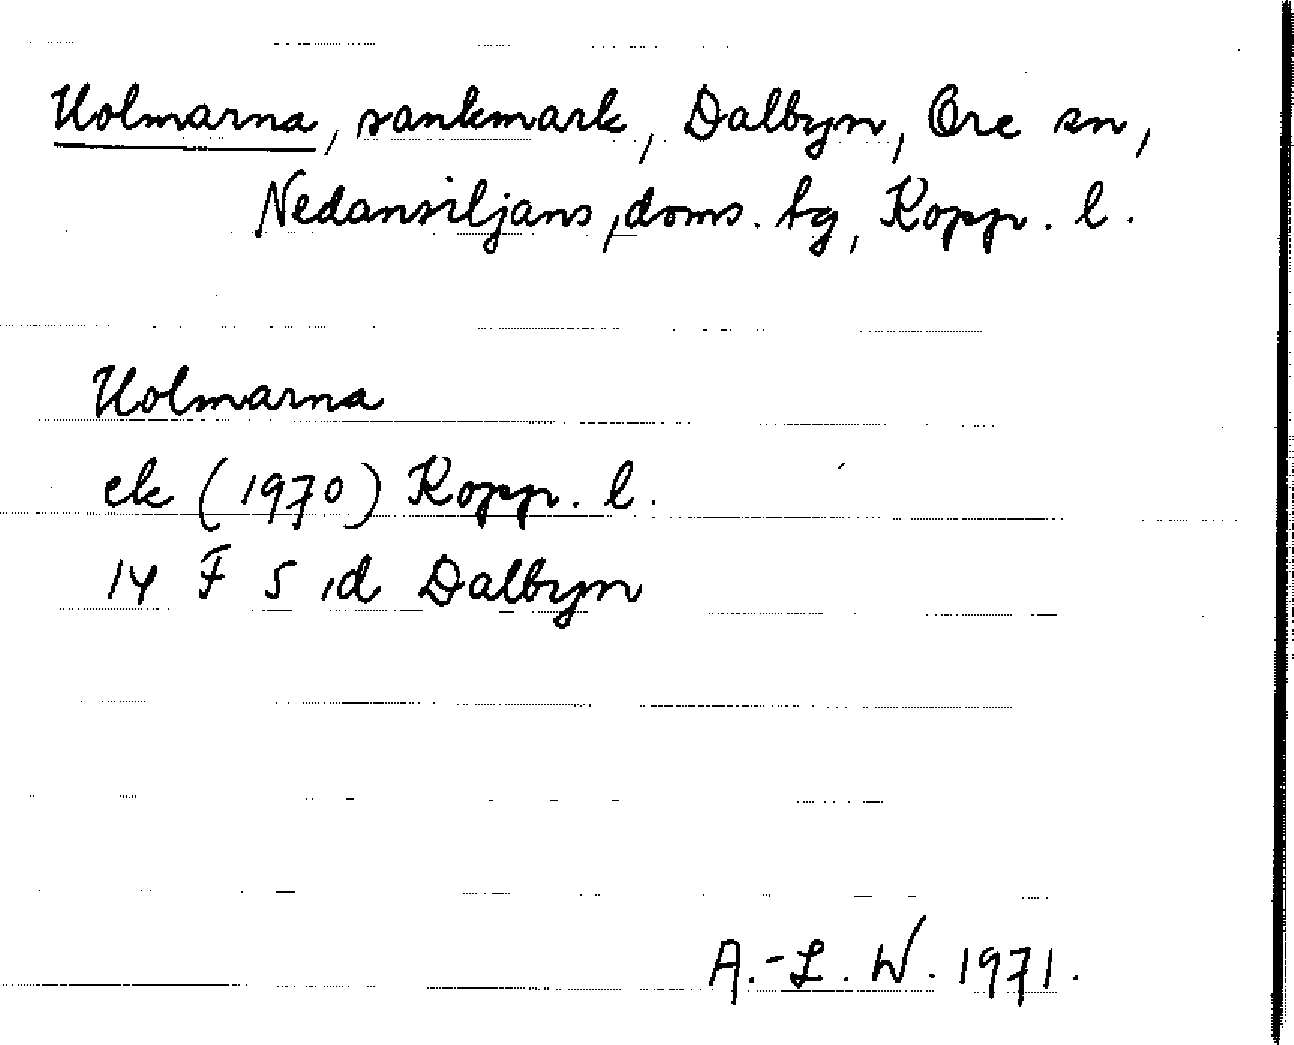 Holmarna, sankmark, Dalbyn, Ore sn,
Nedansiljans doms. tg, Kopp. l.
Holmarna
ek (1970) Kopp. l.
14 F 5 d Dalbyn
A.-L. W. 1971.